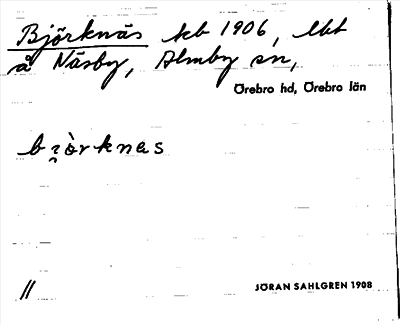 Björknäs kb 1906, lht
å Näsby, Almby sn,
Örebro hd, Örebro län
bjòrknes
//
JÖRAN SAHLGREN 1908